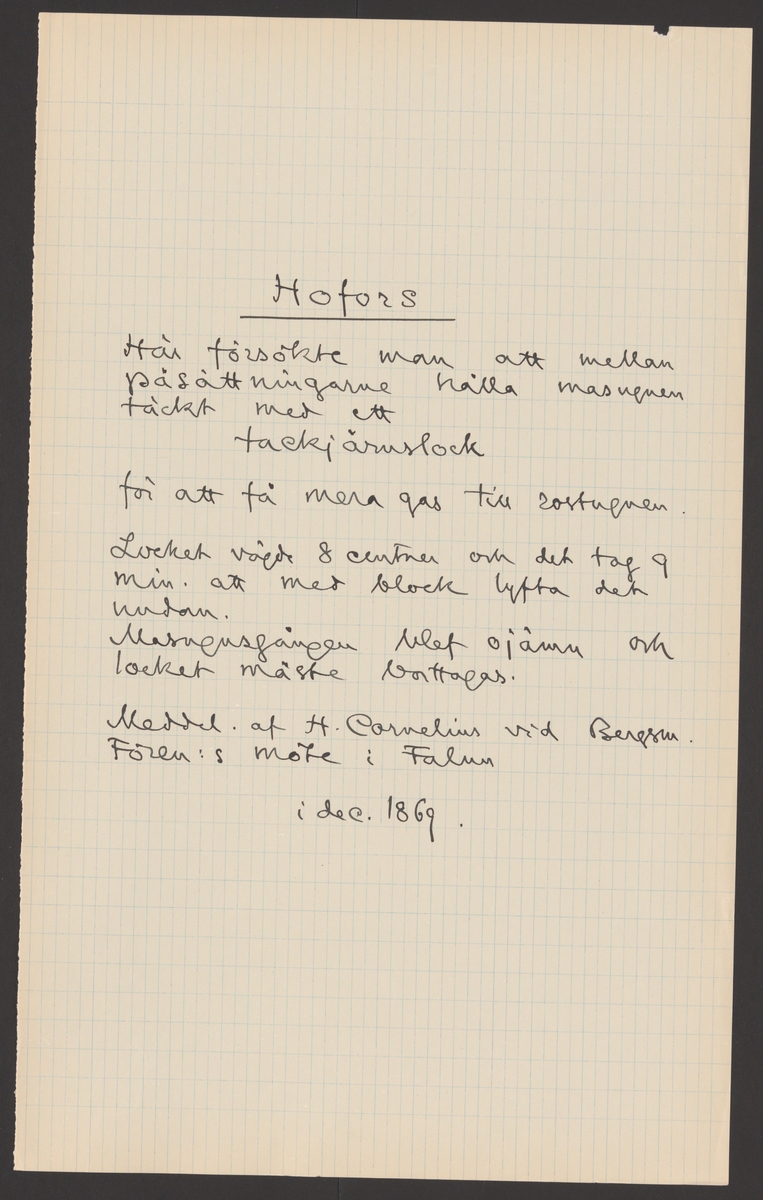 Hofors
Här försökte man att mellan
påsättningarne hålla masugnen
täckt med ett
tackjärnslock
för att få mera gas till rostugnen.
Locket vägde 8 centner och det tog 9
min. att med block lyfta det
undan.
Masugnsgången blef ojämn och
locket måste borttagas.
Meddel. af H. Cornelius vid Bergsm.
Fören:s möte i Falun
i dec. 1869.